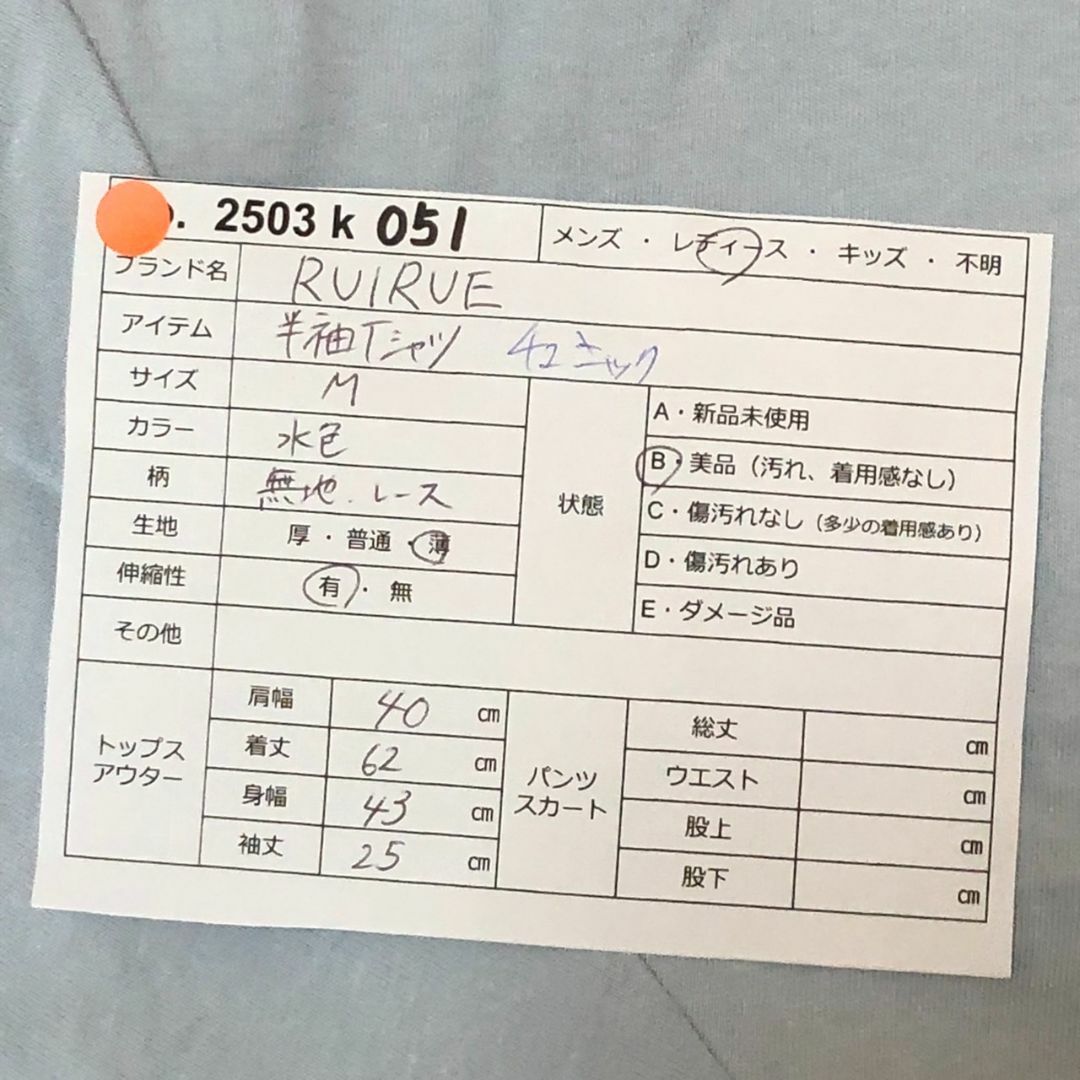 . 2503 k 051
メンズ ・ レディース ・ キッズ ・ 不明
ブランド名 RUIRUE
アイテム 半袖Tシャツ チュニック
サイズ M
カラー 水色
柄 無地.レース
生地 厚・普通・薄
伸縮性 有・無
状態
A・新品未使用
B・美品（汚れ、着用感なし）
C・傷汚れなし（多少の着用感あり）
D・傷汚れあり
E・ダメージ品
その他
トップス
アウター
肩幅 40 cm
着丈 62 cm
身幅 43 cm
袖丈 25 cm
パンツ
スカート
総丈 cm
ウエスト cm
股上 cm
股下 cm